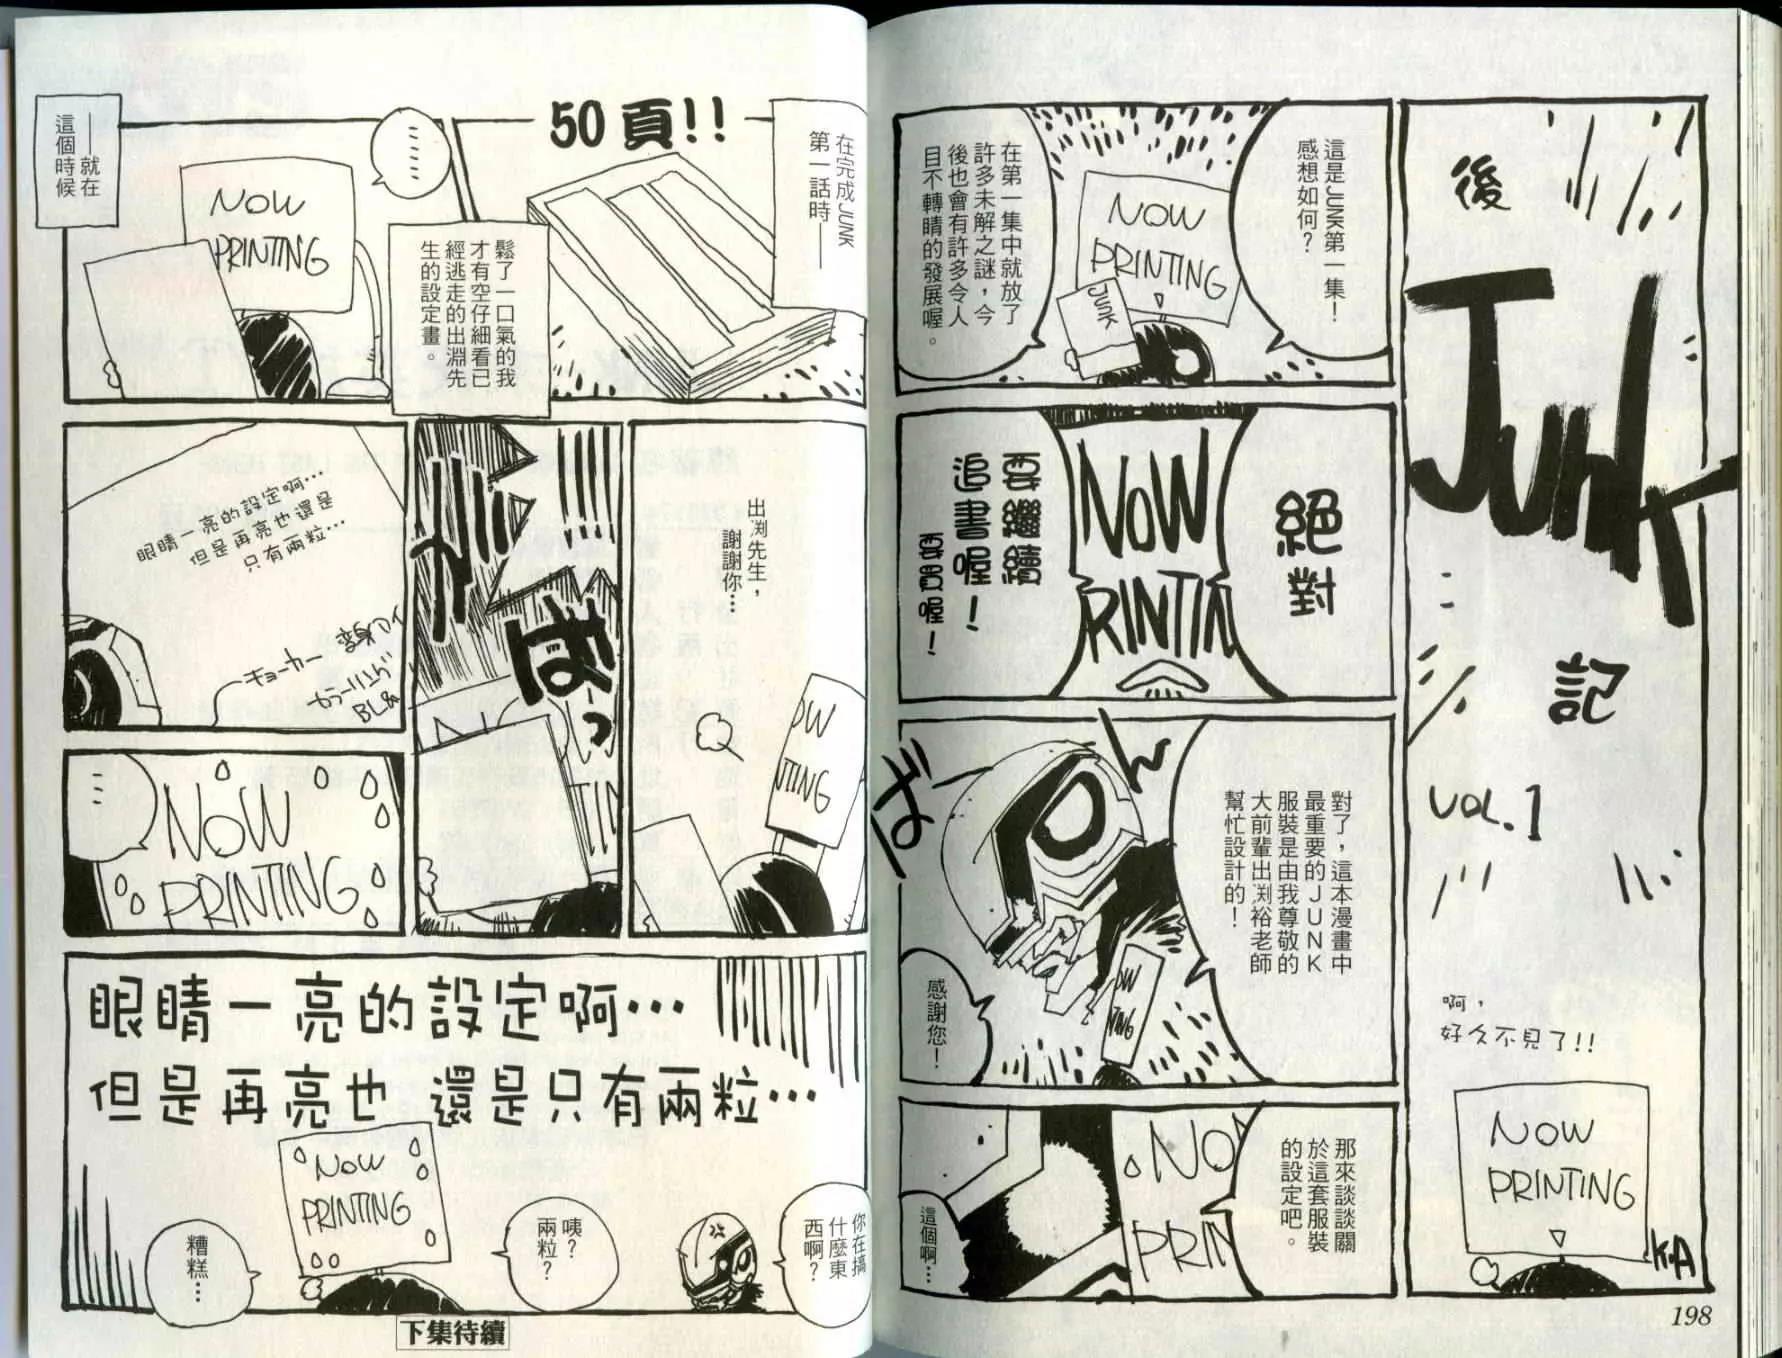 後
JunK
記
VOL.1
啊,
好久不見了!!
NOW
PRINTING
K.A
這是JUNK第一集!
感想如何?
NOW
PRINTING
JUNK
在第一集中就放了
許多未解之謎,今
後也會有許多令人
目不轉睛的發展喔。
絕對
NOW
PRINTIN
要繼續
追書喔!
要買喔!
對了,這本漫畫中
最重要的JUNK
服裝是由我尊敬的
大前輩出渕裕老師
幫忙設計的!
ばーん
OW
TING
感謝您!
那來談談關
於這套服裝
的設定吧。
NO
PRIN
這個啊…
198
在完成JUNK
第一話時——
50頁!!
鬆了一口氣的我
才有空仔細看已
經逃走的出淵先
生的設定畫。
……
NOW
PRINTING
——就在
這個時候
出渕先生,
謝謝你…
OW
TING
ばっ
TIN
眼睛一亮的設定啊…
但是再亮也還是
只有兩粒…
チョーカー
変身アイ
カラーリング
BL&
…
NOW
PRINTING
眼睛一亮的設定啊…
但是再亮也 還是只有兩粒…
你在搞
什麼東
西啊?
咦?
兩粒?
NOW
PRINTING
糟糕…
下集待續